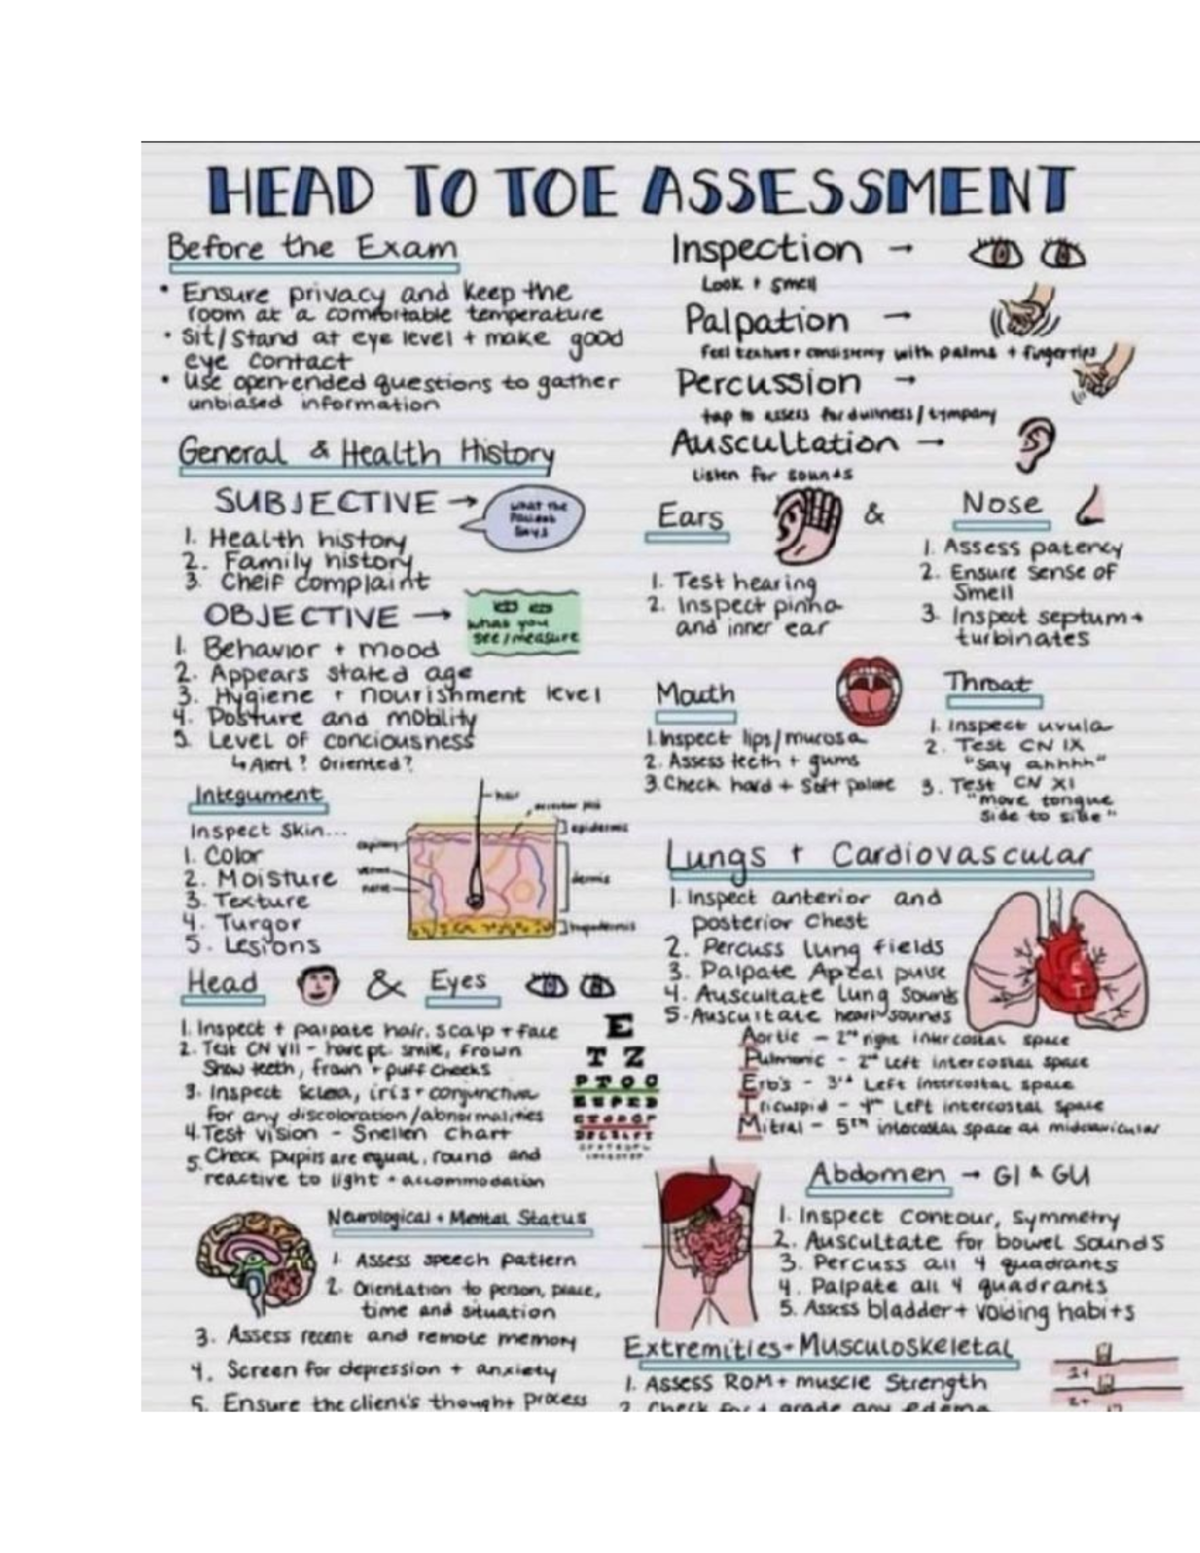 HEAD TO TOE ASSESSMENT
Before the Exam
• Ensure privacy and keep the
room at a comfortable temperature
• Sit/Stand at eye level + make good
eye contact
• Use open-ended questions to gather
unbiased information
General & Health History
SUBJECTIVE →
what the
Patient
Says
1. Health history
2. Family history
3. Cheif complaint
OBJECTIVE →
what you
see/measure
1. Behavior + mood
2. Appears stated age
3. Hygiene + nourishment level
4. Posture and mobility
5. Level of conciousness
↳ Alert? Oriented?
Integument
Inspect Skin...
1. Color
2. Moisture
3. Texture
4. Turgor
5. Lesions
hair
epidermis
dermis
Head & Eyes
1. Inspect + palpate hair, scalp + face
2. Test CN VII - have pt. smile, frown
Show teeth, frown + puff cheeks
3. Inspect Sclea, iris + conjunctiva
for any discoloration/abnormalities
4. Test vision - Snellen Chart
5. Check pupils are equal, round and
reactive to light + accommodation
E
T Z
Neurological + Mental Status
1. Assess speech pattern
2. Orientation to person, place,
time and situation
3. Assess recent and remote memory
4. Screen for depression + anxiety
5. Ensure the client's thought process
Inspection →
Look + Smell
Palpation →
feel texture + consistency with palms + fingertips
Percussion →
tap to assess for dullness/tympany
Auscultation →
Listen for sounds
Ears &
1. Test hearing
2. Inspect pinna
and inner ear
Nose
1. Assess patency
2. Ensure sense of
Smell
3. Inspect septum +
turbinates
Mouth
1. Inspect lips/mucosa
2. Assess teeth + gums
3. Check hard + Soft palate
Throat
1. Inspect uvula
2. Test CN IX
"say ahhhh"
3. Test CN XI
"move tongue
side to side"
Lungs + Cardiovascular
1. Inspect anterior and
posterior Chest
2. Percuss lung fields
3. Palpate Apical pulse
4. Auscultate Lung Sounds
5. Auscultate heart sounds
Aortic - 2nd right intercostal space
Pulmonic - 2nd Left intercostal space
Erb's - 3rd Left intercostal space
Tricuspid - 4th Left intercostal space
Mitral - 5th intercostal space at
Abdomen → GI & GU
1. Inspect contour, symmetry
2. Auscultate for bowel sounds
3. Percuss all 4 quadrants
4. Palpate all 4 quadrants
5. Assess bladder + voiding habits
Extremities + Musculoskeletal
1. Assess ROM + muscle Strength
2. Check for + grade any edema
1+
2+